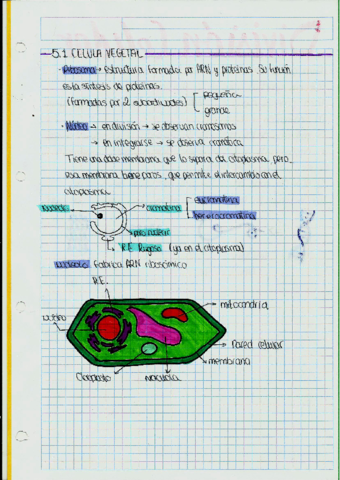 5.1 CELULA VEGETAL
- Ribosoma → estructura formada por ARN y proteinas. Su función
esta sintesis de proteinas.
(Formadas por 2 subunidades) pequeña
grande
- Núcleo → en división → se observan cromosomas
→ en interfase → se observa cromatina.
Tiene una doble membrana que lo separa del citoplasma, pero
esa membrana tiene poros, que permite el intercambio con el
citoplasma.
nucleolo cromatina eucromatina
heterocromatina
poro nuclear
R.E. Rugoso (ya en el citoplasma)
nucleolo: Fabrica ARN ribosómico
R.E.
mitocondria
nucleo
Pared celular
membrana
Cloroplasto vacuola